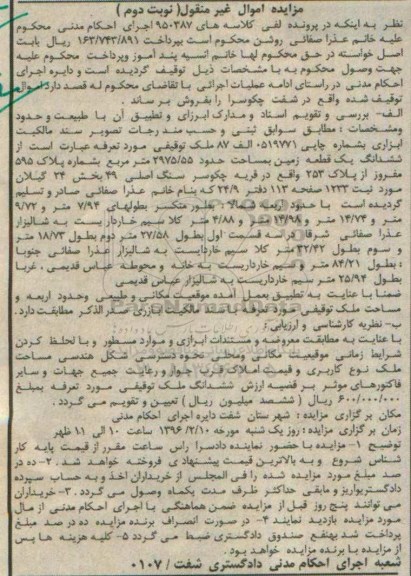 مزایده اموال غیر منقول( نوبت دوم )
نظر به اینکه در پرونده لفی کلاسه های ۹۵۰۳۸۷ اجرای احکام مدنی محکوم
علیه خانم عذرا صفائی روشن محکوم است بپرداخت ۱۶۳/۷۴۳/۸۹۱ ریال بابت
اصل خواسته در حق محکوم لها خانم انسیه پند آموز وپرداخت محکوم علیه
جهت وصول محکوم به با مشخصات ذیل توقیف گردیده است و دایره اجرای
احکام مدنی در راستای ادامه عملیات اجرائی با تقاضای محکوم له قصد دارد اموال
توقیف شده واقع در شفت چکوسرا را بفروش بر ساند .
الف- بررسی و تقویم اسناد و مدارک ابرازی و تطبیق آن با طبیعت و حدود
ومشخصات : مطابق سوابق ثبتی و حسب مندرجات تصویر سند مالکیت
ابرازی بشماره چاپی ۰۵۱۹۷۷۱ الف ۸۷ ملک توقیفی مورد تعرفه عبارت است از
ششدانگ یک قطعه زمین بمساحت حدود ۲۹۷۵/۵۵ متر مربع بشماره پلاک ۵۹۵
مفروز از پلاک ۲۵۳ واقع در قریه چکوسر سنگ اصلی ۴۹ بخش ۲۴ گیلان
مورد ثبت ۱۲۲۳ صفحه ۱۱۳ دفتر ۲۴/۹ که بنام خانم عذرا صفائی صادر و تسلیم
گردیده است با حدود اربعه شمالا بطور متکسر بطولهای ۷/۹۴ متر و ۹/۷۲
متر و ۱۴/۷۴ متر و ۱۳/۹۸ متر و ۴/۸۸ متر کلا سیم خاردار یست به شالیزار
عذرا صفائی شرقا در اسه قسمت اول بطول ۲۷/۵۸ متر دوم بطول ۱۸/۷۳ متر
و سوم بطول ۳۲/۴۲ متر کلا سیم خاردایست به شالیزار عذرا صفائی جنوبا
: بطول ۸۴/۲۱ متر و سیم خارداریست به خانه و محوطه عباس قدیمی ، غربا
بطول ۲۵/۹۴ متر سیم خارداریست به شالیزار عباس قدیمی
ضمنا با عنایت به تطبیق بعمل آمده موقعیت مکانی و طبیعی وحدود اربعه و
مساحت ملک توقیفی مورد تعرفه با سند مالکیت ابرازی فوق الذکر مطابقت دارد .
ب- نظریه کارشناسی و ارزیابی :
با عنایت به مطابقت معروضه و مستندات ابرازی و موارد مسطور و با لحظ کردن
شرایط زمانی موقعیت مکانی ومحلی نحوه تصرف شکل هندسی مساحت
ملک نوع کاربری و قیمت املاک قرب جوار و رعایت جمیع جهات و سایر
فاکتورهای موثر بر قضیه ارزش ششدانگ ملک توقیفی مورد تعرفه بمبلغ
۶۰۰/۰۰۰/۰۰۰ ریال ( ششصد میلیون ریال ) تعیین و تقویم می گردد .
مکان بر گزاری مزایده : شهرستان شفت دایره اجرای احکام مدنی
زمان بر گزاری مزایده : روز یک شنبه مورخه ۱۳۹۶/۲/۱۰ ساعت ۱۰ الی ۱۱ ظهر
توضیح ۱- مزایده با حضور نماینده دادسرا راس ساعت مقرر از قیمت پایه کار
شناس شروع و به بالاترین قیمت پیشنهادی فروخته خواهد شد . ۲- ده در
صد مبلغ مورد مزایده شده را فی المجلس از خریداران اخذ و به حساب سپرده
دادگستری واریز و مابقی حداکثر ظرف مدت یکماه وصول می گردد . ۳- خریداران
می توانند پنج روز قبل از مزایده ضمن هماهنگی با اجرای احکام مدنی از مال
مورد مزایده بازدید نمایند ۴- در صورت انصراف برنده مزایده ده در صد مبلغ
پرداخت شد بهنفع صندوق دادگستری ضبط می گردد ۵- کلیه هزینه ها پس
از مزایده با برنده مزایده خواهد بود .
شعبه اجرای احکام مدنی دادگستری شفت / ۰۱۰۷